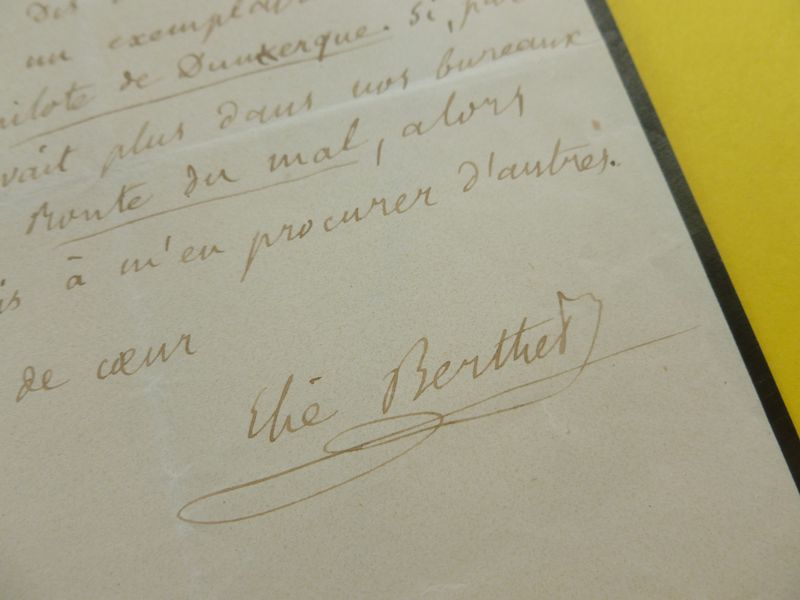 des
un exemplai
ilote de Dunkerque. Si, par
vait plus dans nos bureaux
Route du mal, alors
is à m'en procurer d'autres.
de cœur
Elie Berthet